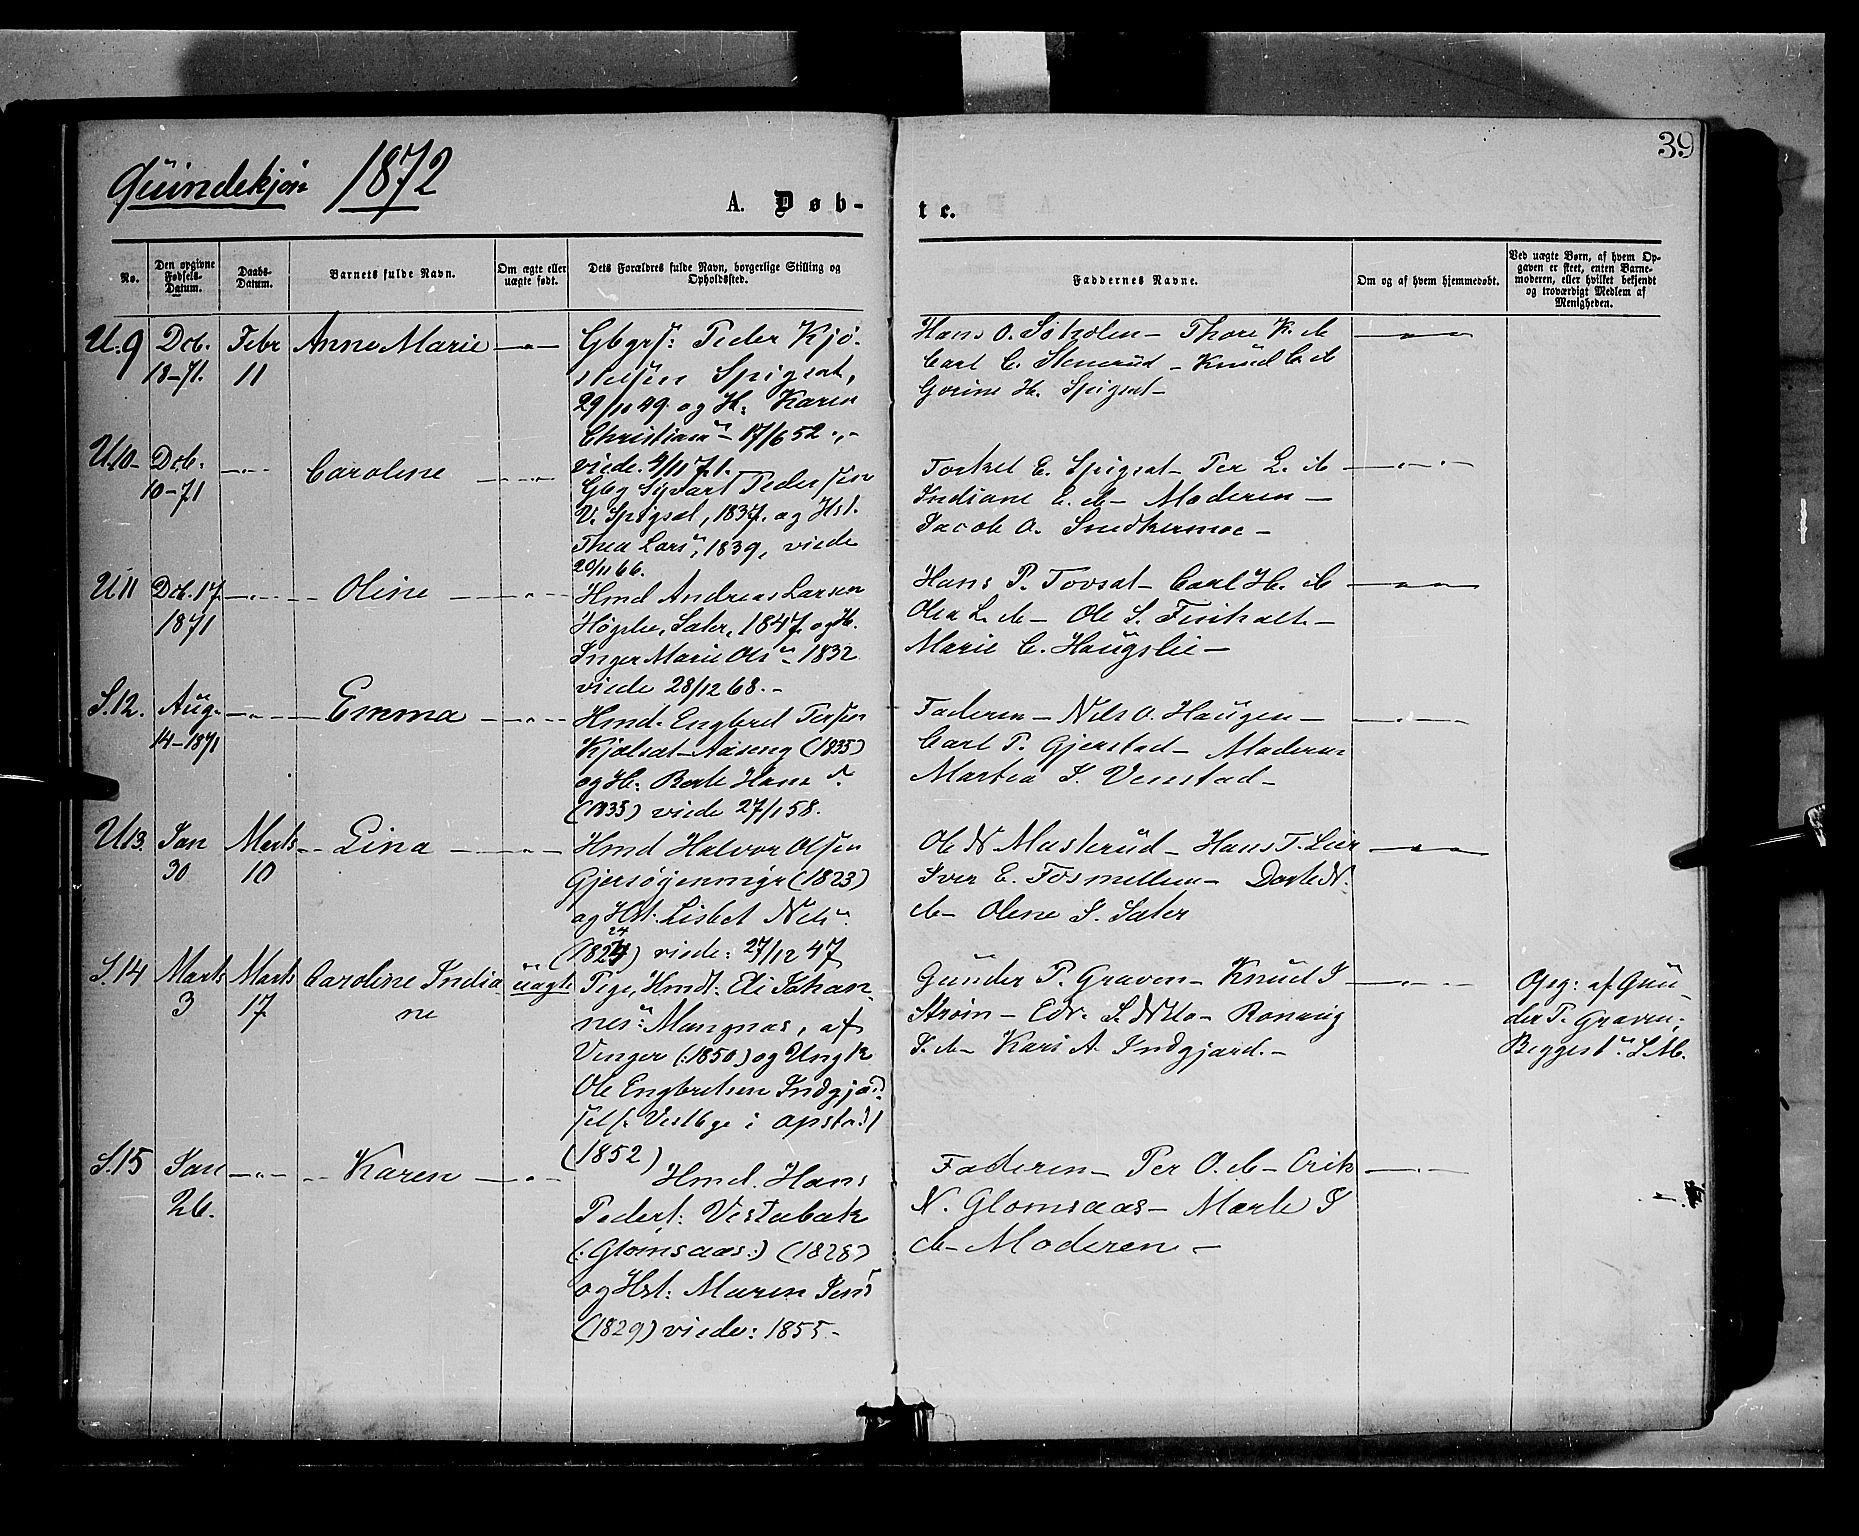 39
Quindekjøn 1872
A. Døb-
te.
No.
Den opgivne Fødsels-Datum.
Daabs-Datum.
Barnets fulde Navn.
Om ægte eller uægte født.
Dets Forældres fulde Navn, borgerlige Stilling og Opholdssted.
Faddernes Navne.
Om og af hvem hjemmedøbt.
Ved uægte Børn, af hvem Op-
gaven er skeet, enten Barne-
moderen, eller hvilket bekjendt
og troværdigt Medlem af
Menigheden.
U.9 Dcb. 18-71. Febr 11 Anne Marie
Peder Kjø-
Spigset,
29/10 49. og H: Karen
Christians 17/6 52
viede. 4/11 71.
Hans O. Thore K. do
Carl C. Stenerud - Knud C. do
Gorine H. Spigset -
U.10 Dcb. 10-71 Caroline
Gbg Sivart Pedersen
V. Spigset, 1837. og Hst.
Thea Lars, 1839, viede
20/11 66.
Torkel E. Spigset - Per L. do
Indiane E. do - Moderen -
Jacob O. Snedkermoe -
U11 Dcb. 17 1871 Oline
Hmd Andreas Larsen
Sater, 1847. og H.
Inger Marie Ols 1832
viede 28/12 68. -
Hans P. Tovset - Carl H. do
Olea L. do - Ole S.
Marie C. Haugslie -
S.12. Aug. 14-1871 Emma
Hmd. Engbret
Kjølset - Aaseng (1835)
og H: Berte Hans
(1835) viede 27/1 58.
Faderen - Nils O. Haugen -
Carl P. Gjerstad - Moderen
Martea S. Venstad -
U13. Jan 30 Marts 10 Lina
Hmd Halvor Olsen
(1823)
og Hst: Lisbet Nels
(1824) viede: 27/12 47
24
Ole N Masterud - Hans T. Lier
Iver E. Dorte N.
do - Olene S. Sater
S.14 Marts 3 Marts 17 Caroline Indiane uægte
Pige, Hmdt: Eli Johan-
nes Mangnæs, af
Vinger (:1850) og Ungk
Ole Engbretsen Indgjard
Vestbye i Opstad
(1852)
Gunder P. Graven - Knud I
Strøm - Edv. S. Ronnug
I. do - Kari A. Indgjard. -
Opg: af Gun-
der P. Graven,
S.15 Jan 26. Karen
Hmd. Hans
Peders: Vestabak
(: Glomsaas:) (1828)
og Hst: Maren Jens
(1829) viede: 1855 -
Faderen - Per O. do - Erik
N. Glomsaas - Marte I
do - Moderen -